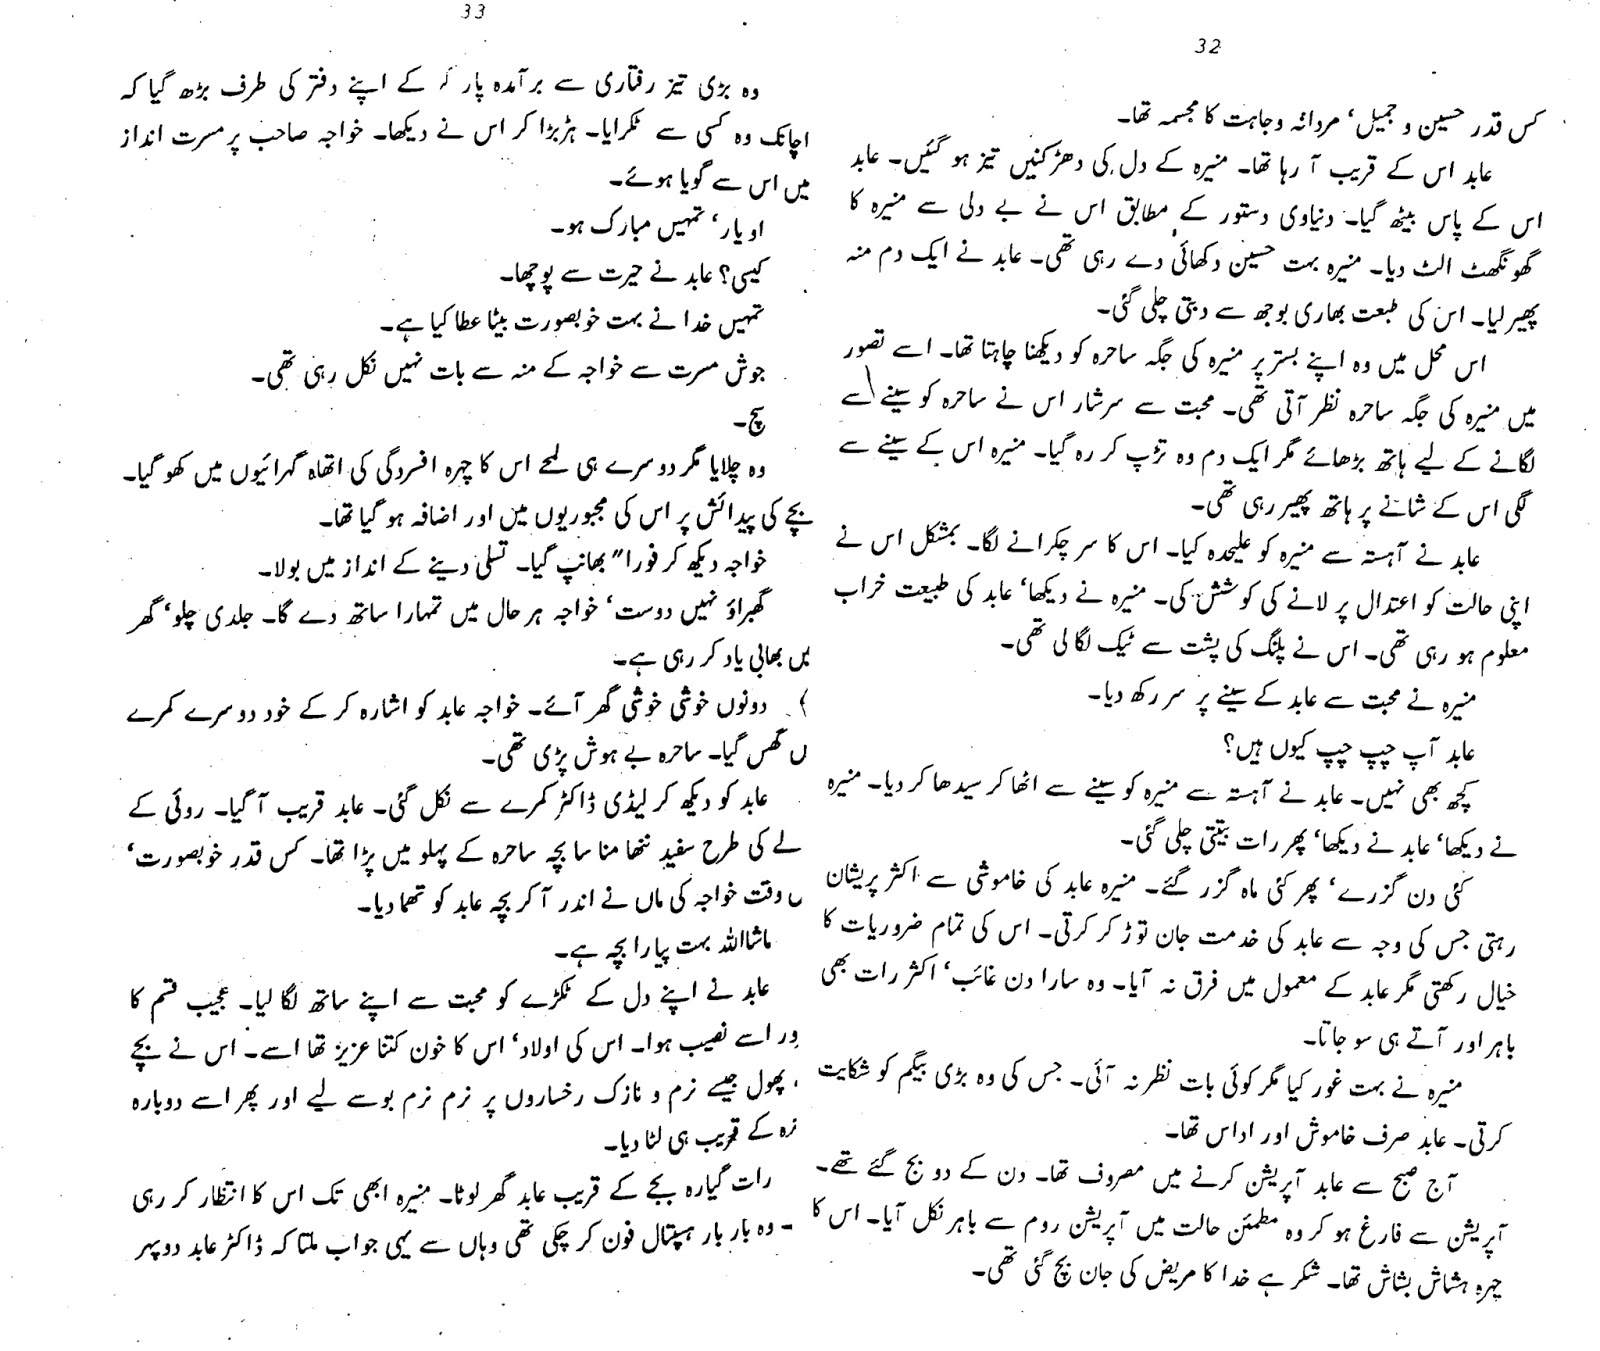 32
کس قدر حسین و جمیل، مردانہ وجاہت کا مجسمہ تھا۔
عابد اس کے قریب آ رہا تھا۔ منیرہ کے دل کی دھڑکنیں تیز ہو گئیں۔ عابد
اس کے پاس بیٹھ گیا۔ دنیاوی دستور کے مطابق اس نے بے دلی سے منیرہ کا
گھونگھٹ الٹ دیا۔ منیرہ بہت حسین دکھائی دے رہی تھی۔ عابد نے ایک دم منہ
پھیر لیا۔ اس کی طبعت بھاری بوجھ سے دبتی چلی گئی۔
اس محل میں وہ اپنے بستر پر منیرہ کی جگہ ساحرہ کو دیکھنا چاہتا تھا۔ اسے تصور
میں منیرہ کی جگہ ساحرہ نظر آتی تھی۔ محبت سے سرشار اس نے ساحرہ کو سینے سے
لگانے کے لیے ہاتھ بڑھائے مگر ایک دم وہ تڑپ کر رہ گیا۔ منیرہ اس کے سینے سے
لگی اس کے شانے پر ہاتھ پھیر رہی تھی۔
عابد نے آہستہ سے منیرہ کو علیحدہ کیا۔ اس کا سر چکرانے لگا۔ بمشکل اس نے
اپنی حالت کو اعتدال پر لانے کی کوشش کی۔ منیرہ نے دیکھا، عابد کی طبیعت خراب
معلوم ہو رہی تھی۔ اس نے پلنگ کی پشت سے ٹیک لگا لی تھی۔
منیرہ نے محبت سے عابد کے سینے پر سر رکھ دیا۔
عابد آپ چپ چپ کیوں ہیں؟
کچھ بھی نہیں۔ عابد نے آہستہ سے منیرہ کو سینے سے اٹھا کر سیدھا کر دیا۔ منیرہ
نے دیکھا، عابد نے دیکھا، پھر رات بیتتی چلی گئی۔
کئی دن گزرے، پھر کئی ماہ گزر گئے۔ منیرہ عابد کی خاموشی سے اکثر پریشان
رہتی جس کی وجہ سے عابد کی خدمت جان توڑ کر کرتی۔ اس کی تمام ضروریات کا
خیال رکھتی مگر عابد کے معمول میں فرق نہ آیا۔ وہ سارا دن غائب، اکثر رات بھی
باہر اور آتے ہی سو جاتا۔
منیرہ نے بہت غور کیا مگر کوئی بات نظر نہ آئی۔ جس کی وہ بڑی بیگم کو شکایت
کرتی۔ عابد صرف خاموش اور اداس تھا۔
آج صبح سے عابد آپریشن کرنے میں مصروف تھا۔ دن کے دو بج گئے تھے۔
آپریشن سے فارغ ہو کر وہ مطمئن حالت میں آپریشن روم سے باہر نکل آیا۔ اس کا
چہرہ ہشاش بشاش تھا۔ شکر ہے خدا کا مریض کی جان بچ گئی تھی۔
33
وہ بڑی تیز رفتاری سے برآمدہ پار کے اپنے دفتر کی طرف بڑھ گیا کہ
اچانک وہ کسی سے ٹکرایا۔ ہڑبڑا کر اس نے دیکھا۔ خواجہ صاحب پر مسرت انداز
میں اس سے گویا ہوئے۔
او یار، تمہیں مبارک ہو۔
کیسی؟ عابد نے حیرت سے پوچھا۔
تمہیں خدا نے بہت خوبصورت بیٹا عطا کیا ہے۔
جوش مسرت سے خواجہ کے منہ سے بات نہیں نکل رہی تھی۔
سچ۔
وہ چلایا مگر دوسرے ہی لمحے اس کا چہرہ افسردگی کی اتھاہ گہرائیوں میں کھو گیا۔
بچے کی پیدائش پر اس کی مجبوریوں میں اور اضافہ ہو گیا تھا۔
خواجہ دیکھ کر فورا" بھانپ گیا۔ تسلی دینے کے انداز میں بولا۔
گھبراؤ نہیں دوست، خواجہ ہر حال میں تمہارا ساتھ دے گا۔ جلدی چلو، گھر
بھابی یاد کر رہی ہے۔
دونوں خوشی خوشی گھر آئے۔ خواجہ عابد کو اشارہ کر کے خود دوسرے کمرے
گھس گیا۔ ساحرہ بے ہوش پڑی تھی۔
عابد کو دیکھ کر لیڈی ڈاکٹر کمرے سے نکل گئی۔ عابد قریب آ گیا۔ روئی کے
لے کی طرح سفید ننھا منا سا بچہ ساحرہ کے پہلو میں پڑا تھا۔ کس قدر خوبصورت،
وقت خواجہ کی ماں نے اندر آ کر بچہ عابد کو تھما دیا۔
ماشااللہ بہت پیارا بچہ ہے۔
عابد نے اپنے دل کے ٹکڑے کو محبت سے اپنے ساتھ لگا لیا۔ عجیب قسم کا
ور اسے نصیب ہوا۔ اس کی اولاد، اس کا خون کتنا عزیز تھا اسے۔ اس نے بچے
پھول جیسے نرم و نازک رخساروں پر نرم نرم بوسے لیے اور پھر اسے دوبارہ
رہ کے قریب ہی لٹا دیا۔
رات گیارہ بجے کے قریب عابد گھر لوٹا۔ منیرہ ابھی تک اس کا انتظار کر رہی
۔ وہ بار بار ہسپتال فون کر چکی تھی وہاں سے یہی جواب ملتا کہ ڈاکٹر عابد دوپہر